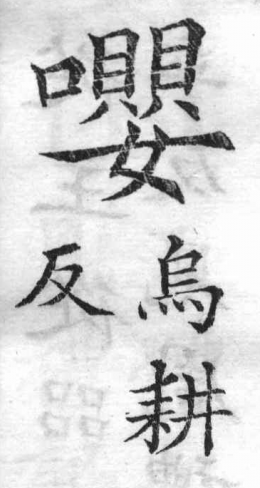 嚶
烏耕
反